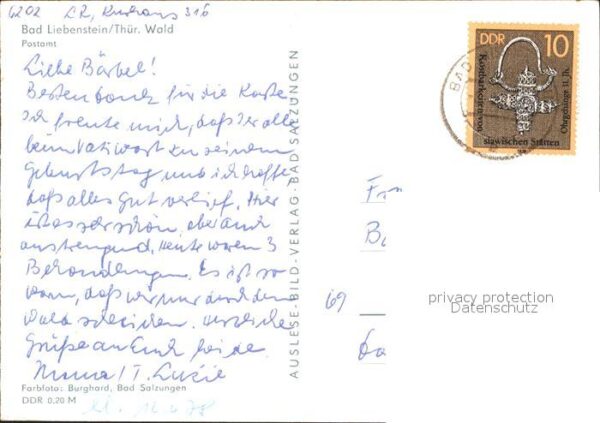 6202 LR, Kurhaus 316
Bad Liebenstein/Thür. Wald
Postamt
Liebe Bärbel!
Besten Dank für die Karte
ich freute mich, daß er alle
beim Vati wart zu seinem
Geburtstag und ich hoffe
daß alles gut verlief. Hier
ist es sehr schön, aber auch
anstrengend, heute waren 3
Behandlungen. Es ist so
warm, daß wir nur durch den
Wald schleichen. Herzliche
Grüße an Euch beide.
Mama / T. Luzie
Farbfoto: Burghard, Bad Salzungen
DDR 0,20 M
AUSLESE-BILD-VERLAG · BAD SALZUNGEN
DDR 10
Kostbarkeiten von
slawischen Stätten
Ohrgehänge 11. Jh.
BAD
Fr
B
69
privacy protection
Datenschutz